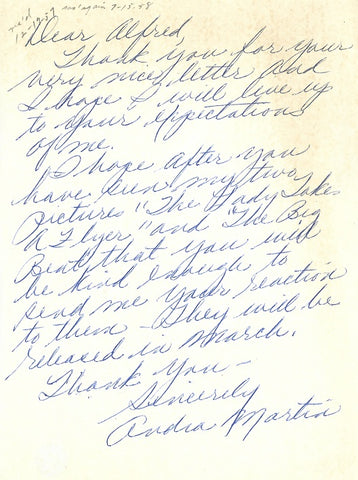 rec'd 12-19-57
ans'again 9-15-58
Dear Alfred,
Thank you for your
very nice letter and
I hope I will live up
to your expectations
of me.
I hope after you
have seen my two
pictures "The Lady Takes
A Flyer" and "The Big
Beat" that you will
be kind enough to
send me your reaction
to them - They will be
released in March.
Thank you -
Sincerely
Andra Martin